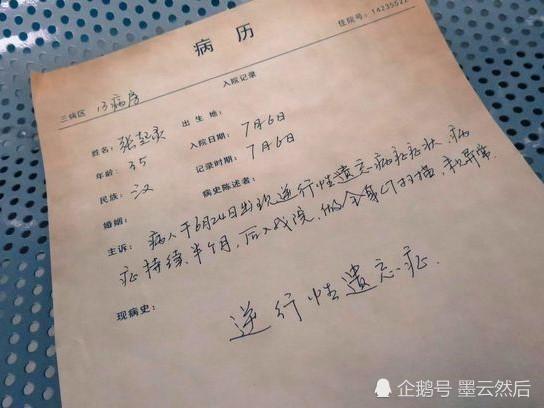 病历
住院号：14235522
三病区 13病房
入院记录
姓名：张起灵 出生地：
年龄：35 入院日期：7月6日
民族：汉 记录时期：7月6日
婚姻： 病史陈述者：
主诉：病人于6月24日出现逆行性遗忘病症症状，病
症持续半个月，后入我院，做全身CT扫描，无异常。
现病史：
逆行性遗忘症.
企鹅号 墨云然后